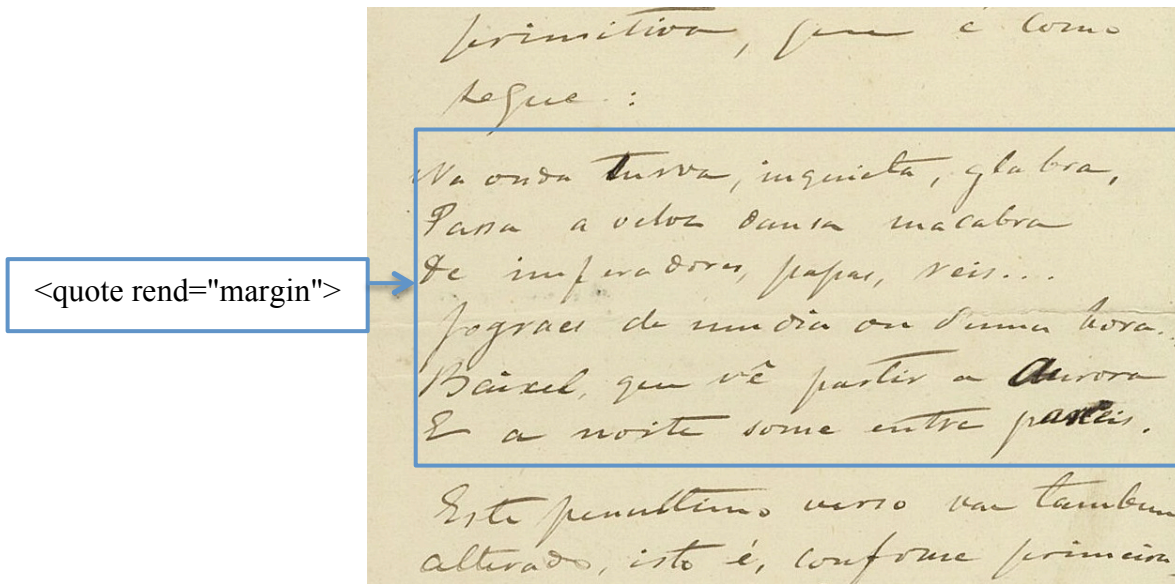 primitiva, que é como
segue :
<quote rend="margin">
Na onda turva, inquieta, glabra,
Passa a veloz dansa macabra
De imperadores, papas, reis...
Jograes de um dia ou d'uma hora.
Baixel, que vê partir a Aurora
E a noite some entre parceis.
Este penultimo verso vae tambem
alterado, isto é, conforme primeira